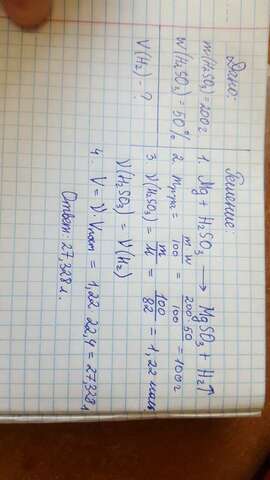 Дано:
m(H₂SO₃)=200г
W(H₂SO₃)=50%
V(H₂)-?
Решение:
1. Mg + H₂SO₃ ⟶ MgSO₃ + H₂↑
2. mчра = m·w/100 = 200·50/100 = 100г
3. ν(H₂SO₃) = m/M = 100/82 = 1,22 моль
ν(H₂SO₃) = ν(H₂)
4. V = ν·Vмол = 1,22·22,4 = 27,328л
Ответ: 27,328л.